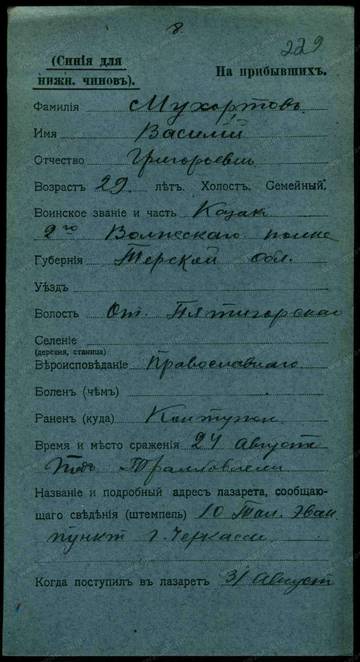 8.
229
(Синія для
нижн. чиновъ).
На прибывшихъ.
Фамилія Мухортовъ
Имя Василій
Отчество Григорьевъ
Возрастъ 29 лѣтъ. Холостъ. Семейный.
Воинское званіе и часть Казак
2го Волжскаго полка
Губернія Терской обл.
Уѣздъ
Волость Ст. Пятигорской
Селеніе
(деревня, станица)
Вѣроисповѣданіе Православнаго
Боленъ (чѣмъ)
Раненъ (куда) Контужен
Время и мѣсто сраженія 24 Августа
подъ
Названіе и подробный адресъ лазарета, сообщаю-
щаго свѣдѣнія (штемпель) 10 Тыл. Эвак
пункт г. Черкассы
Когда поступилъ въ лазаретъ 31 Август